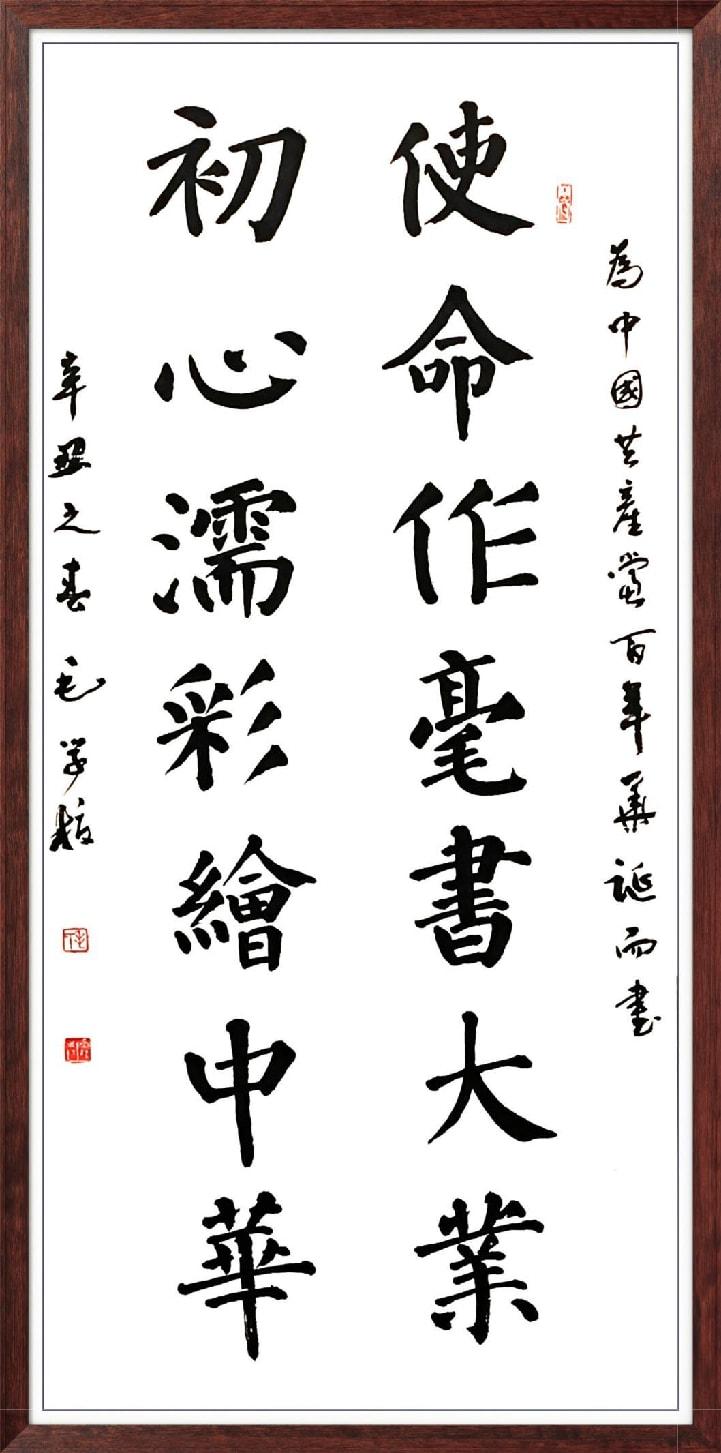 為中國共產黨百年華誕而書
使命作毫書大業
初心濡彩繪中華
辛丑之春 毛學